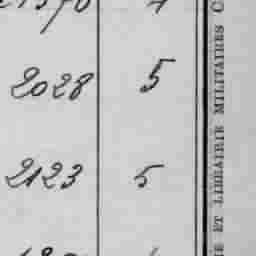 2028 5
2123 5
IE ET LIBRAIRIE MILITAIRES C